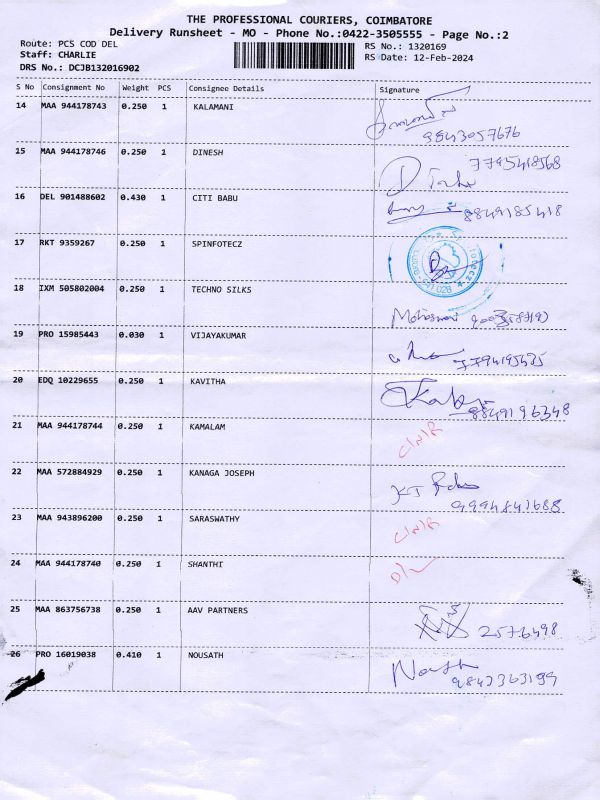 THE PROFESSIONAL COURIERS, COIMBATORE
Delivery Runsheet - MO - Phone No.:0422-3505555 - Page No.:2
Route: PC5 COD DEL
Staff: CHARLIE
DRS No.: DCJB132016902
RS No.: 1320169
RS Date: 12-Feb-2024
S No Consignment No Weight PCS Consignee Details Signature
14 MAA 944178743 0.250 1 KALAMANI
9843057676
15 MAA 944178746 0.250 1 DINESH
7795418568
16 DEL 901488602 0.430 1 CITI BABU
8849185418
17 RKT 9359267 0.250 1 SPINFOTECZ
18 IXM 505802004 0.250 1 TECHNO SILKS
19 PRO 15985443 0.030 1 VIJAYAKUMAR
7794195435
20 EDQ 10229655 0.250 1 KAVITHA
8849196348
21 MAA 944178744 0.250 1 KAMALAM
22 MAA 572884929 0.250 1 KANAGA JOSEPH
9994841688
23 MAA 943896200 0.250 1 SARASWATHY
24 MAA 944178740 0.250 1 SHANTHI
D/L
25 MAA 863756738 0.250 1 AAV PARTNERS
2576498
26 PRO 16019038 0.410 1 NOUSATH
Nousath
9842363199